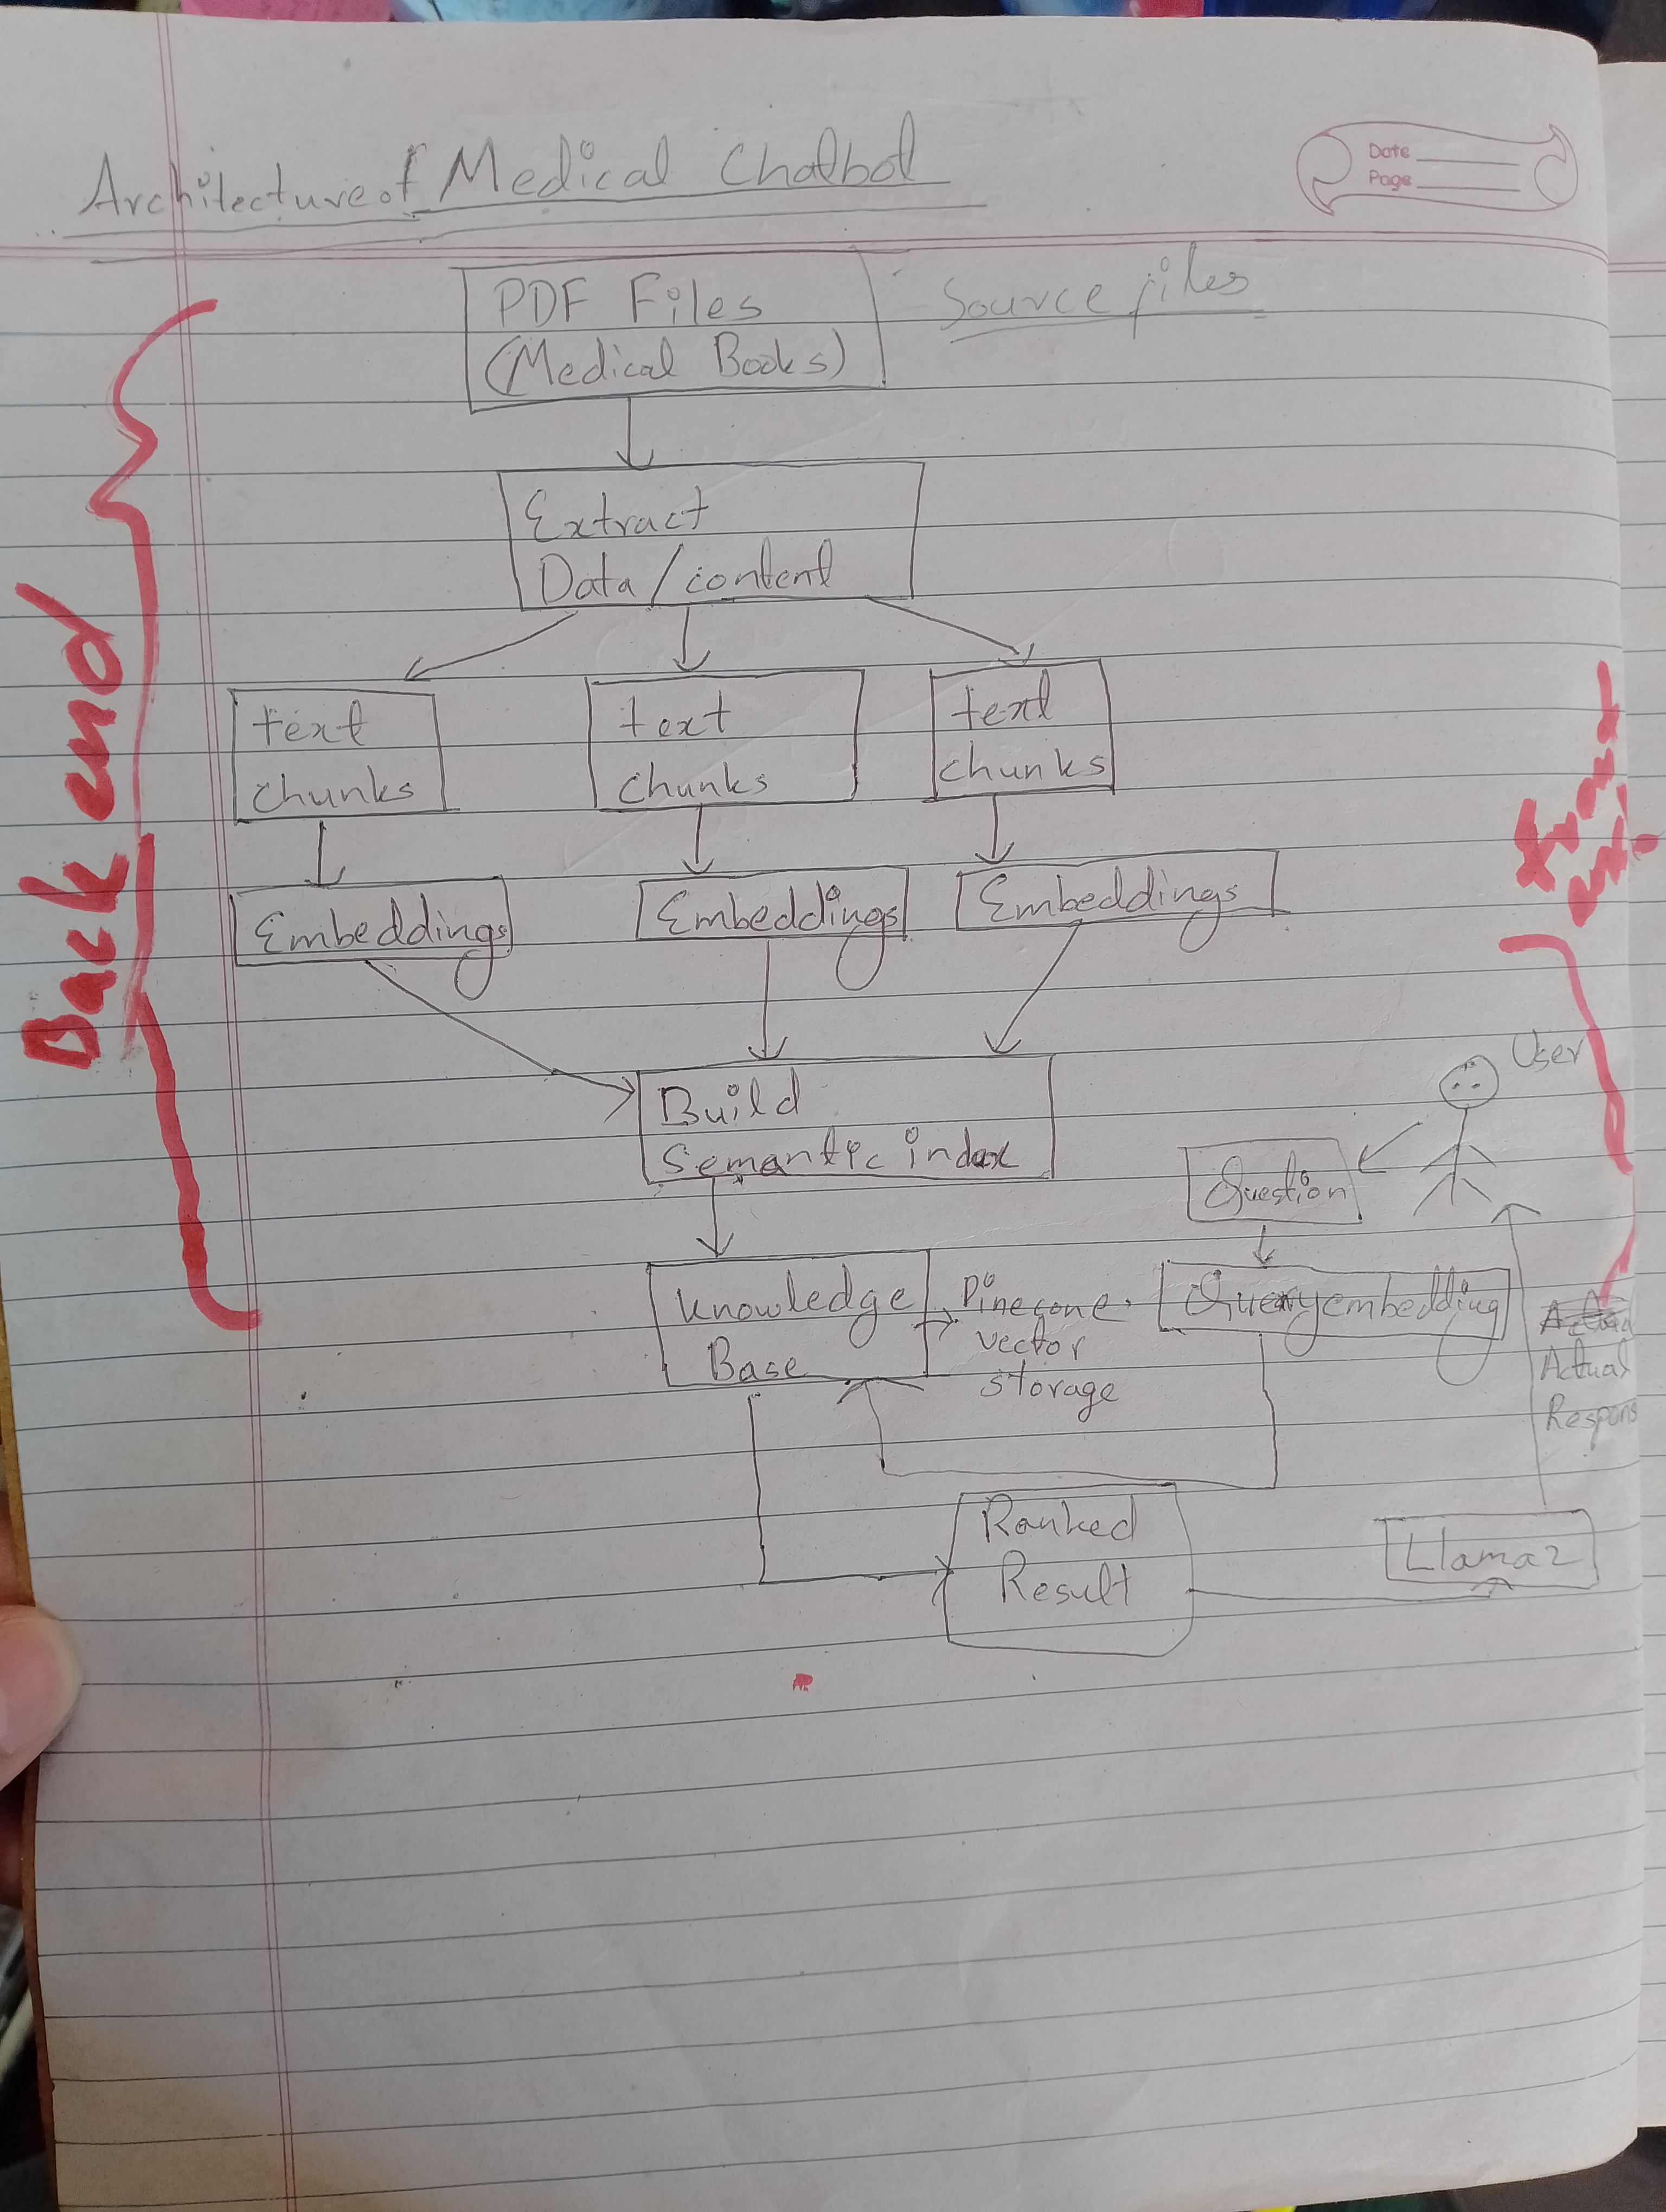 Architecture of Medical Chatbot
Date
Page
PDF Files
(Medical Books)
Source files
Extract
Data/content
text
chunks
text
chunks
text
chunks
Back end
Embeddings
Embeddings
Embeddings
Build
Semantic index
User
Question
Knowledge
Base
Pinecone
vector
storage
Query embedding
Actual
Respons
Ranked
Result
Llama2